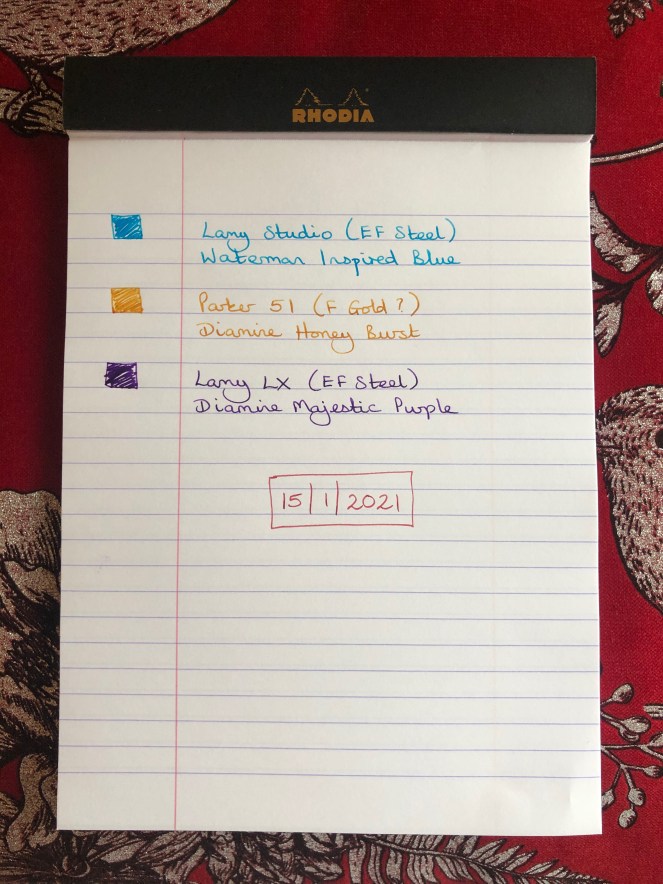 RHODIA
Lamy Studio (EF Steel)
Waterman Inspired Blue
Parker 51 (F Gold?)
Diamine Honey Burst
Lamy LX (EF Steel)
Diamine Majestic Purple
15/1/2021